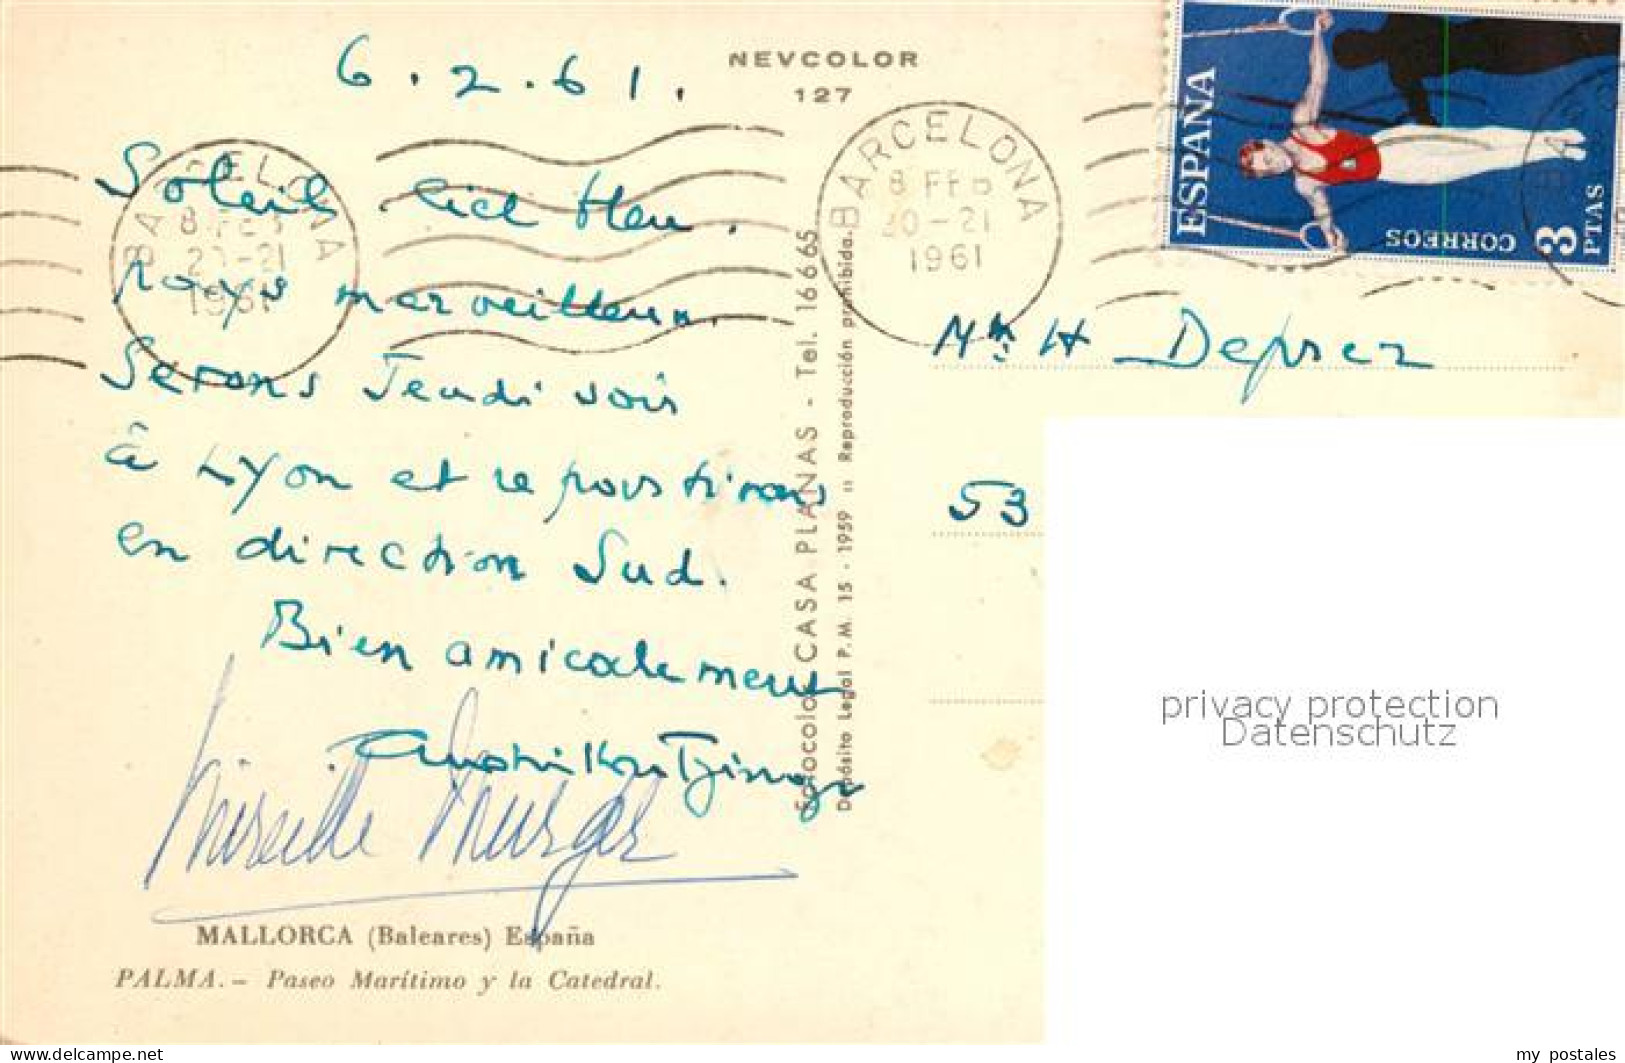 NEVCOLOR
127
6.2.61.
Soleil ciel bleu.
Pays merveilleux.
Serons Jeudi soir
à Lyon et repartirons
en direction Sud.
Bien amicalement
Mireille
MALLORCA (Baleares) España
PALMA.- Paseo Marítimo y la Catedral.
Fotocolor CASA PLANAS - Tel. 16665
Depósito Legal P. M. 15 - 1959 :: Reproducción prohibida.
BARCELONA
8 FEB
20-21
1961
BARCELONA
8 FEB
20-21
1961
ESPAÑA
CORREOS
3
PTAS
H Deprez
53
privacy protection
Datenschutz
www.delcampe.net
my_postales